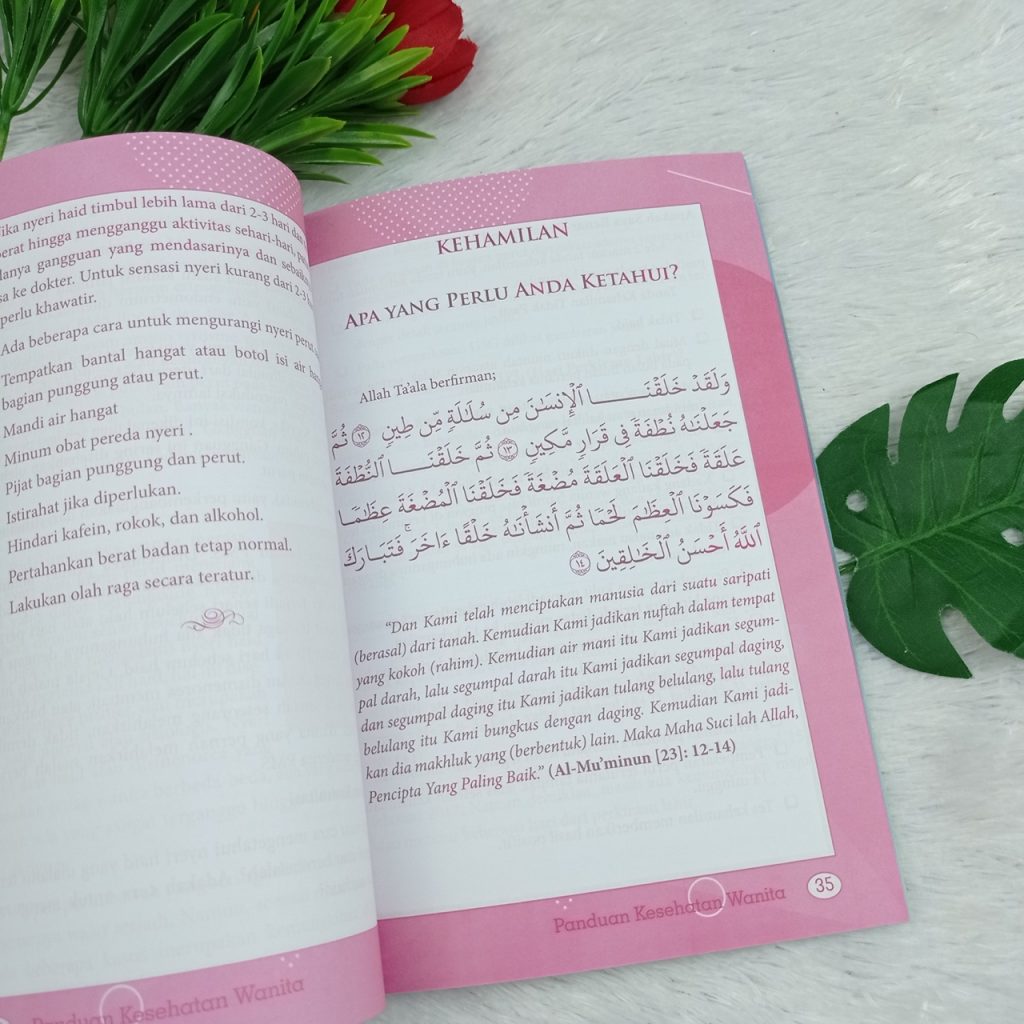 ika nyeri haid timbul lebih lama dari 2-3 hari dan
erat hingga mengganggu aktivitas sehari-hari,
anya gangguan yang mendasarinya dan
sa ke dokter. Untuk sensasi nyeri kurang dari 2-3
perlu khawatir.
Ada beberapa cara untuk mengurangi nyeri
Tempatkan bantal hangat atau botol isi air
bagian punggung atau perut.
Mandi air hangat
Minum obat pereda nyeri .
Pijat bagian punggung dan perut.
Istirahat jika diperlukan.
Hindari kafein, rokok, dan alkohol.
Pertahankan berat badan tetap normal.
Lakukan olah raga secara teratur.
Panduan Kesehatan Wanita
KEHAMILAN
APA YANG PERLU ANDA KETAHUI?
Allah Ta'ala berfirman;
وَلَقَدْ خَلَقْنَا ٱلْإِنسَٰنَ مِن سُلَٰلَةٍ مِّن طِينٍ ١٢ ثُمَّ
جَعَلْنَٰهُ نُطْفَةً فِى قَرَارٍ مَّكِينٍ ١٣ ثُمَّ خَلَقْنَا ٱلنُّطْفَةَ
عَلَقَةً فَخَلَقْنَا ٱلْعَلَقَةَ مُضْغَةً فَخَلَقْنَا ٱلْمُضْغَةَ عِظَٰمًا
فَكَسَوْنَا ٱلْعِظَٰمَ لَحْمًا ثُمَّ أَنشَأْنَٰهُ خَلْقًا ءَاخَرَ ۚ فَتَبَارَكَ
ٱللَّهُ أَحْسَنُ ٱلْخَٰلِقِينَ ١٤
“Dan Kami telah menciptakan manusia dari suatu saripati
(berasal) dari tanah. Kemudian Kami jadikan nuftah dalam tempat
yang kokoh (rahim). Kemudian air mani itu Kami jadikan segum-
pal darah, lalu segumpal darah itu Kami jadikan segumpal daging,
dan segumpal daging itu Kami jadikan tulang belulang, lalu tulang
belulang itu Kami bungkus dengan daging. Kemudian Kami jadi-
kan dia makhluk yang (berbentuk) lain. Maka Maha Suci lah Allah,
Pencipta Yang Paling Baik.” (Al-Mu’minun [23]: 12-14)
Panduan Kesehatan Wanita 35